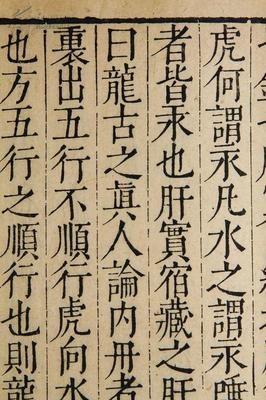 虎何謂汞凡水之謂汞唾
者皆汞也肝實宿藏之肝
曰龍古之眞人論内丹者
裏出五行不順行虎向水
也方五行之順行也則龍